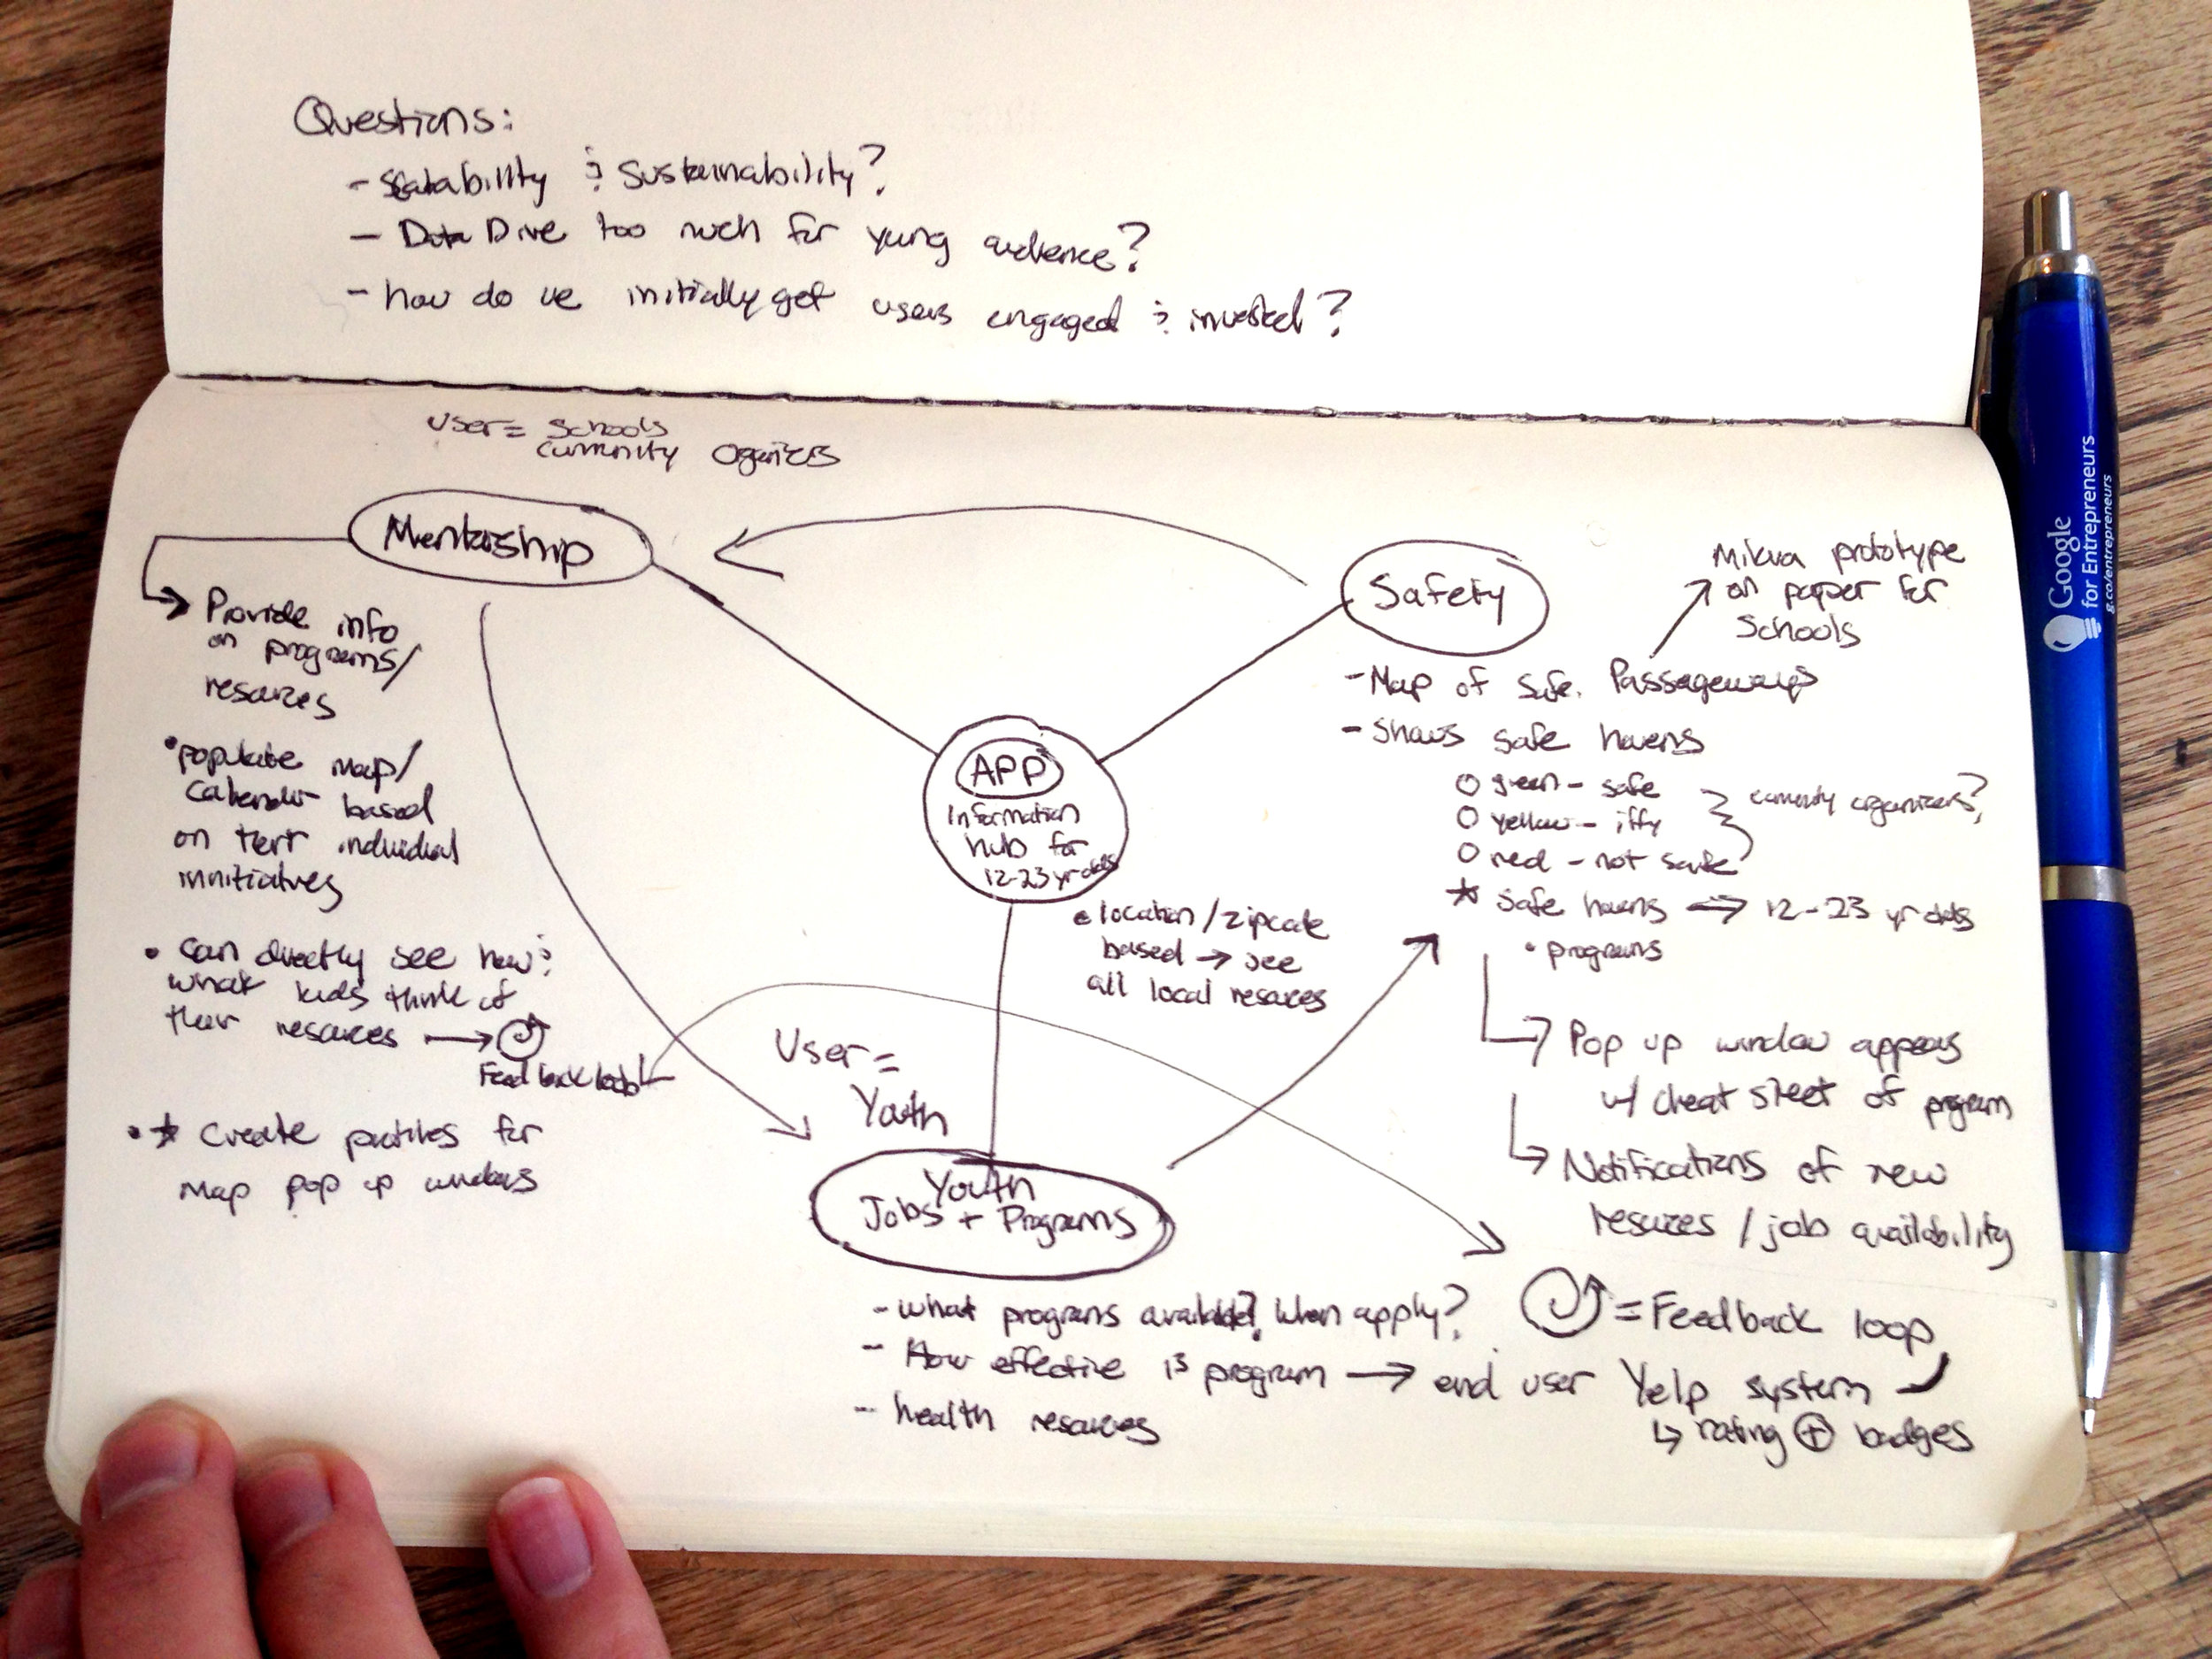 Questions:
- Scalability & Sustainability?
- Data Dive too much for yung audience?
- how do we initially get users engaged & invested?
User = Schools
community organizers
Mentorship
Provide info
on programs/
resources
• populate map/
calender based
on their individual
innitiatives
• can directly see how &
what kids think of
their resources →
Feedback loop
• ★ Create profiles for
map pop up windows
Safety
Mikva prototype
on paper for
Schools
- Map of safe. Passageways
- Shows safe havens
○ green - safe
○ yellow - iffy
○ red - not safe
community organizers?
★ Safe havens → 12-23 yr olds
• programs
Pop up window appears
w/ cheat sheet of program
Notifications of new
resources / job availability
APP
Information
hub for
12-23 yr olds
• location/zipcode
based → see
all local resources
User =
Youth
Youth
Jobs + Programs
- what programs available? When apply?
- How effective is program → end user Yelp system
- health resources
= Feedback loop
↳ rating + badges
Google
for Entrepreneurs
g.co/entrepreneurs